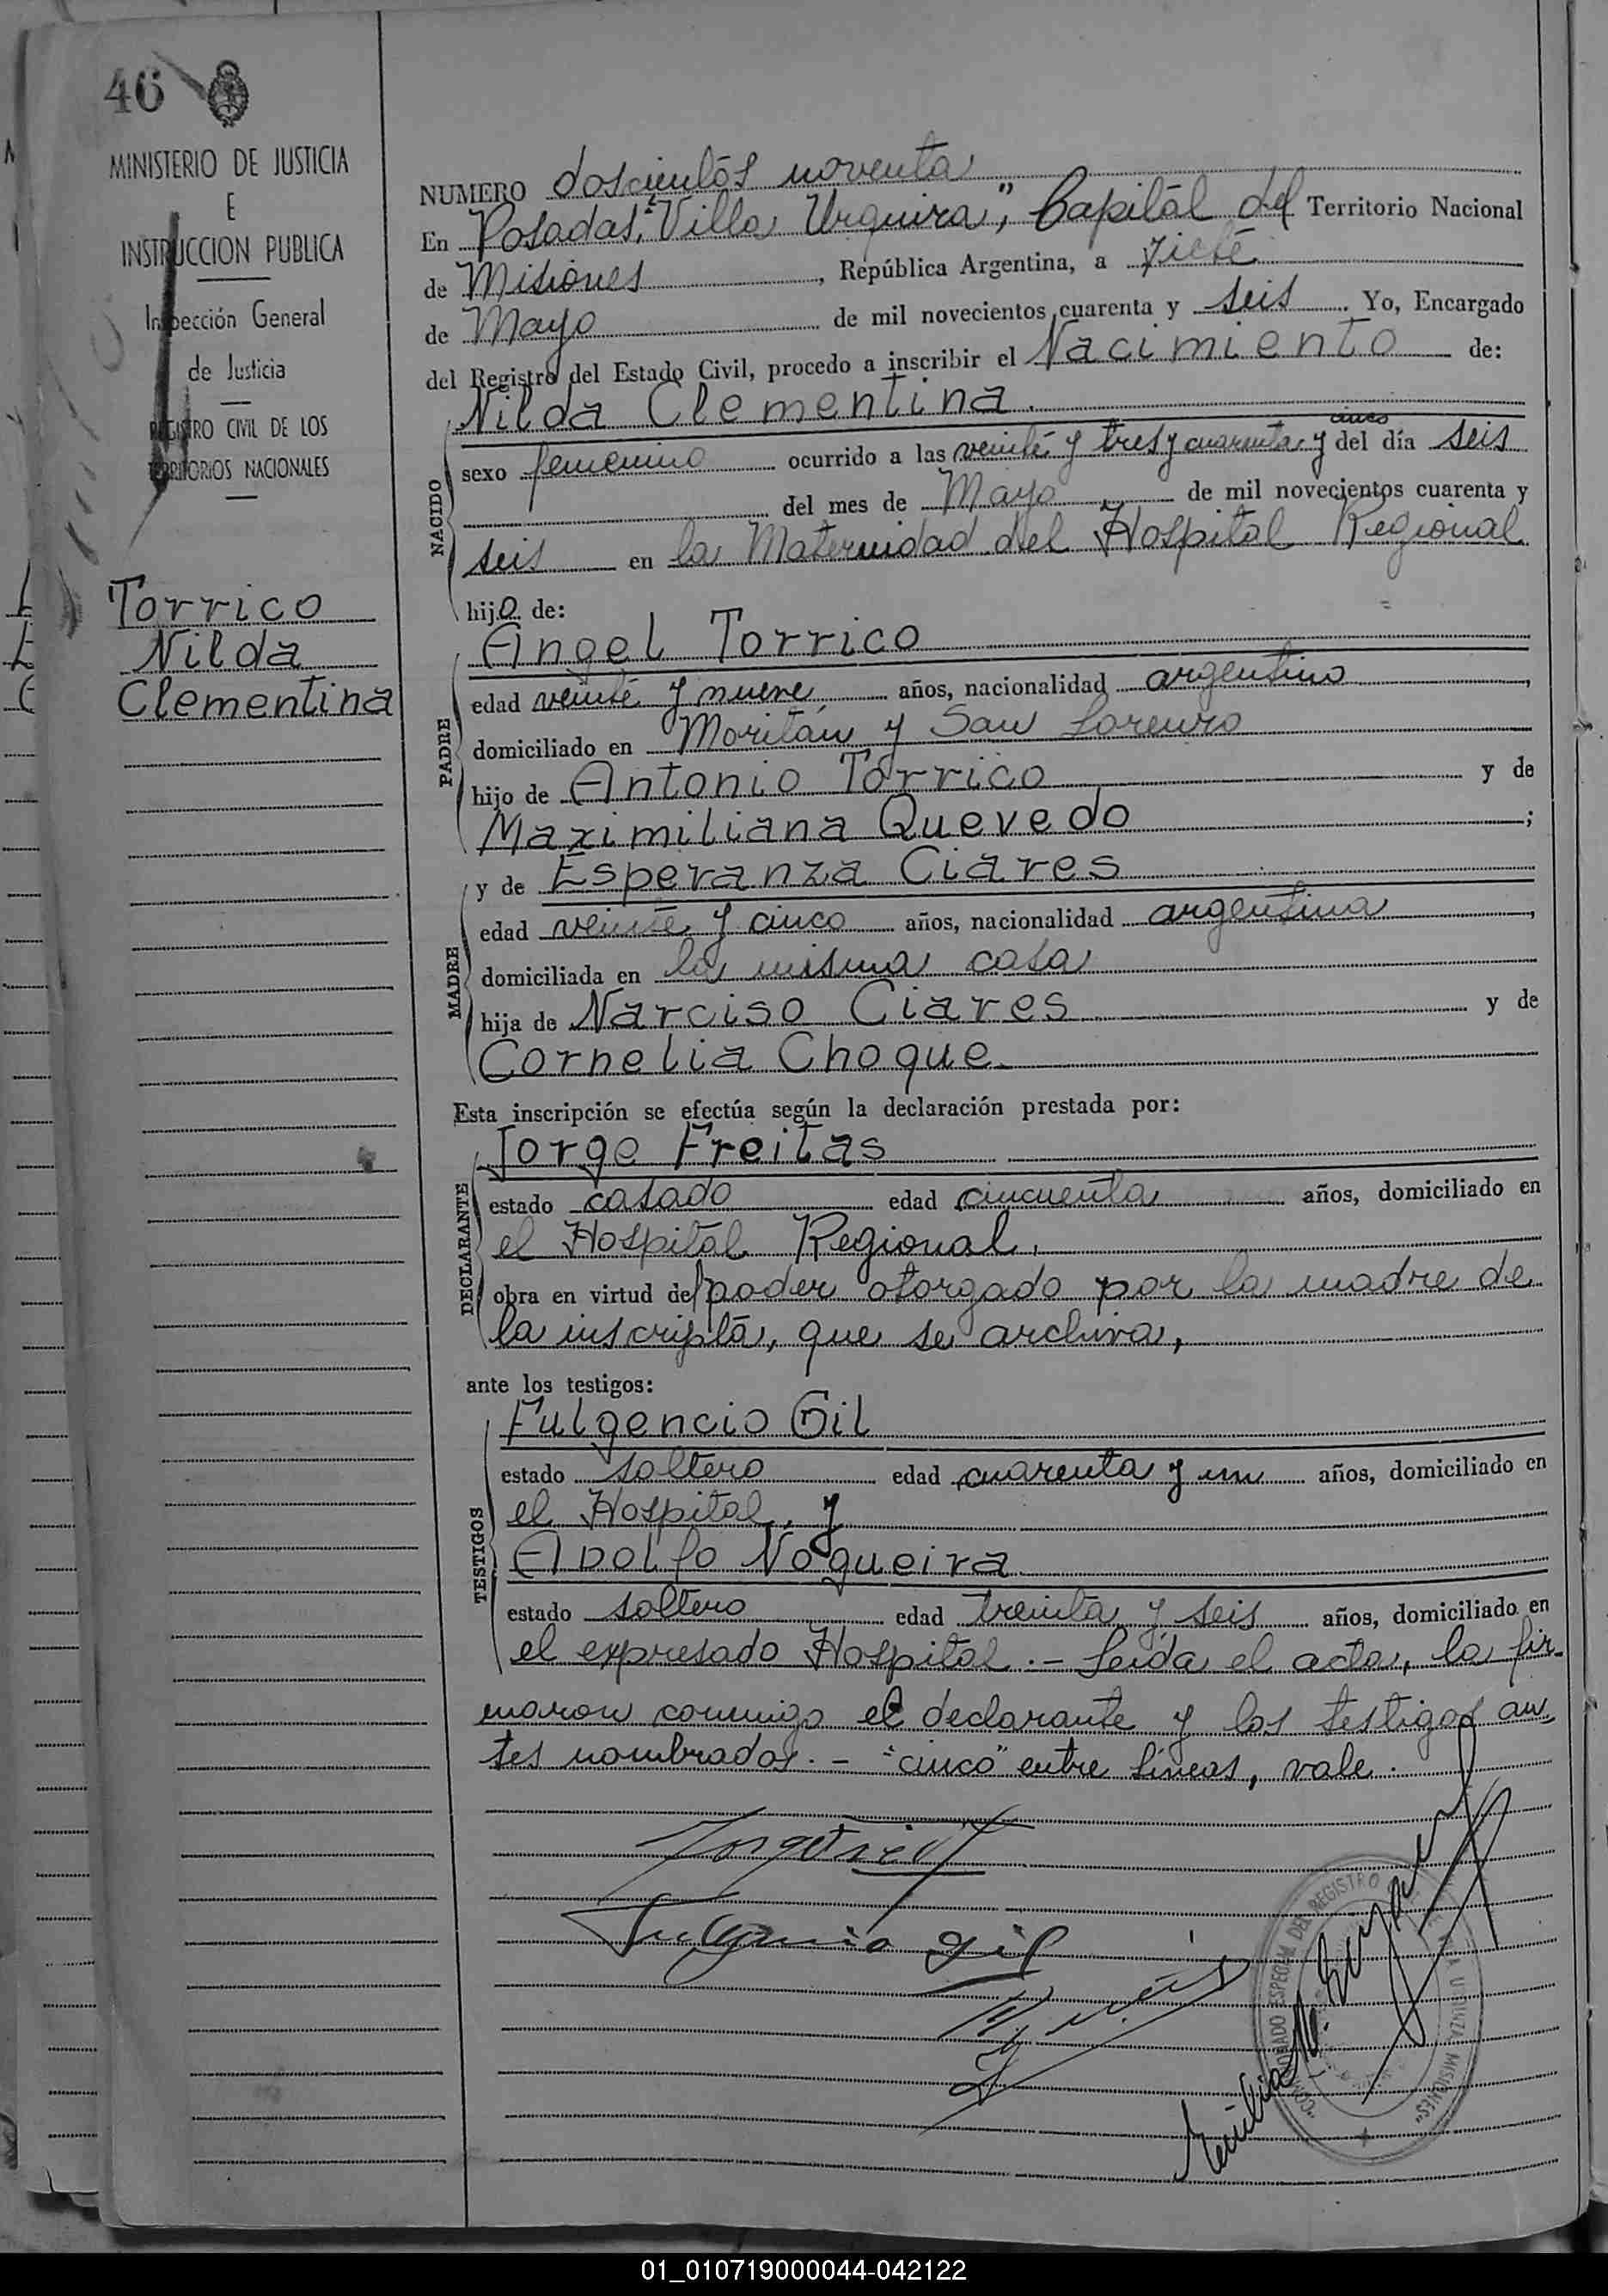 46
MINISTERIO DE JUSTICIA
E
INSTRUCCION PUBLICA
Inspección General
de Justicia
REGISTRO CIVIL DE LOS
TERRITORIOS NACIONALES
Torrico
Nilda
Clementina
NUMERO doscientos noventa
En Posadas, "Villa Urquiza", Capital del Territorio Nacional
de Misiones, República Argentina, a siete
de Mayo de mil novecientos cuarenta y seis. Yo, Encargado
del Registro del Estado Civil, procedo a inscribir el Nacimiento de:
Nilda Clementina.
NACIDO
cinco
sexo femenino ocurrido a las veinte y tres y cuarenta y del día seis
del mes de Mayo, de mil novecientos cuarenta y
seis en la Maternidad del Hospital Regional
hija de:
Angel Torrico
PADRE
edad veinte y nueve, años, nacionalidad argentino,
domiciliado en Moritán y San Lorenzo
hijo de Antonio Torrico y de
Maximiliana Quevedo;
y de Esperanza Ciares
MADRE
edad veinte y cinco años, nacionalidad argentina,
domiciliada en la misma casa
hija de Narciso Ciares y de
Cornelia Choque.
Esta inscripción se efectúa según la declaración prestada por:
Jorge Freitas
DECLARANTE
estado casado edad cincuenta años, domiciliado en
el Hospital Regional,
obra en virtud del poder otorgado por la madre de
la inscripta, que se archiva,
ante los testigos:
Fulgencio Gil
TESTIGOS
estado soltero edad cuarenta y un años, domiciliado en
el Hospital, y
Adolfo Nogueira
estado soltero edad treinta y seis años, domiciliado en
el expresado Hospital.- Leída el acta, la fir-
maron conmigo el declarante y los testigos an-
tes nombrados.- "cinco" entre líneas, vale.
Fulgencio Gil
REGISTRO
MISIONES
01_010719000044-042122